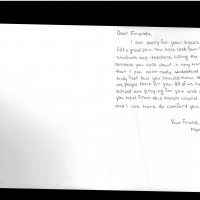 Dear Friends,
I am sorry for your losses.
great pain. You have lost
students and teachers. Losing
someone you care about is very
that I can never really understand
truly feel but you should know
are people there for you. All of us
school are praying for you and
you heal from this harsh wound.
and I are here to comfort you
Your Friend,